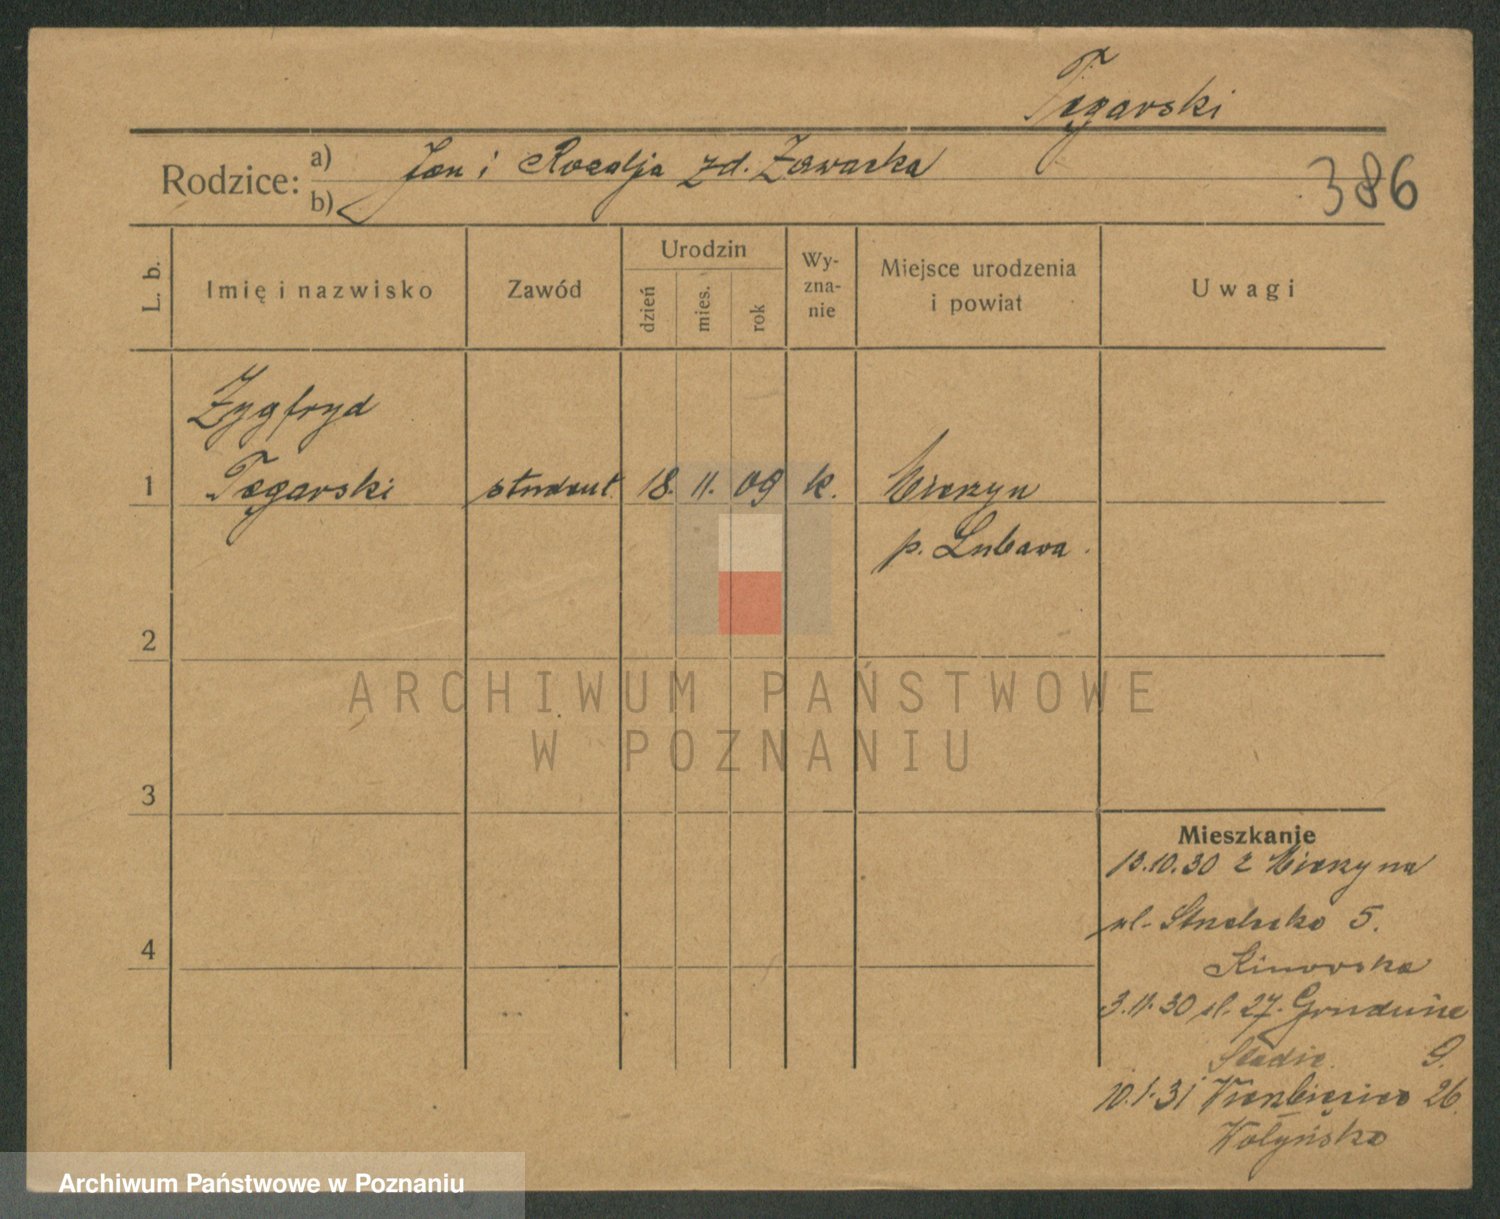 Tęgarski
Rodzice: a) Jan i Rozalja zd. Zawacka
b)
386
L. b.
Imię i nazwisko
Zawód
Urodzin
dzień
mies.
rok
Wy-
zna-
nie
Miejsce urodzenia
i powiat
Uwagi
Zygfryd
1 Tęgarski student 18. 11. 09 k.
p. Lubawa.
2
3
4
Mieszkanie
13.10.30 z
ul. Strzelecka 5.
3.11.30 ul. 27. Grudnia
9.
10.1.31 Wierzbięcice 26.
Wołyńska
ARCHIWUM PAŃSTWOWE
W POZNANIU
Archiwum Państwowe w Poznaniu